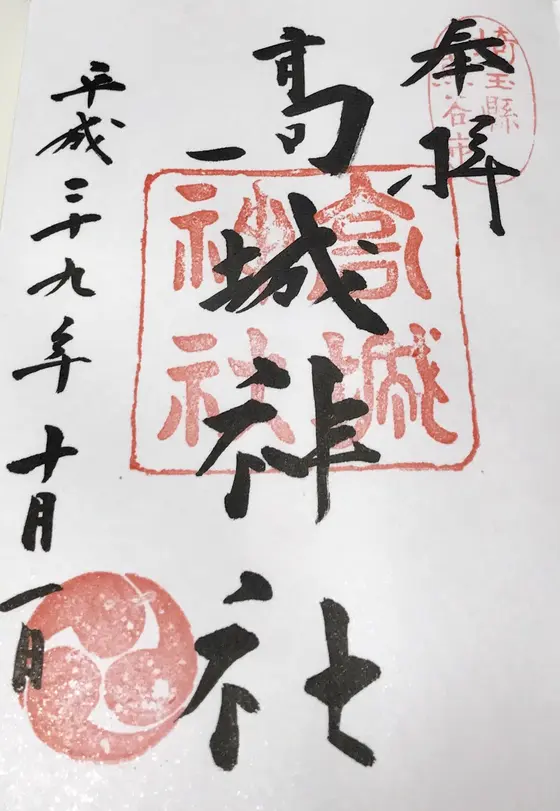 奉拝
埼玉縣
熊谷市
高城神社
高城
神社
平成二十九年十月一日